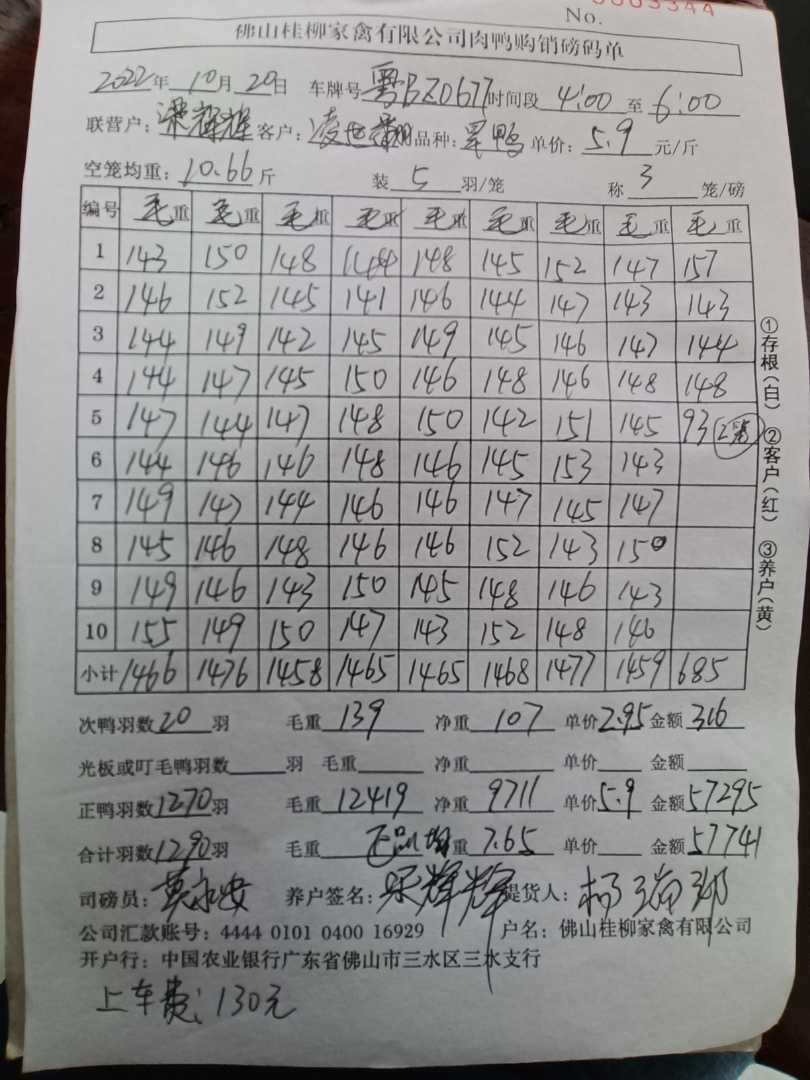 No. 0003344
佛山桂柳家禽有限公司肉鸭购销磅码单
2022年10月20日 车牌号 粤BZ0677 时间段 4:00 至 6:00
联营户: 梁辉辉 客户: 凌世 品种: 旱鸭 单价: 5.9 元/斤
空笼均重: 10.66 斤 装 5 羽/笼 称 3 笼/磅
编号 毛重 毛重 毛重 毛重 毛重 毛重 毛重 毛重 毛重
1 143 150 148 144 148 145 152 147 157
2 146 152 145 141 146 144 147 143 143
3 144 149 142 145 149 145 146 147 144
4 144 147 145 150 146 148 146 148 148
5 147 144 147 148 150 142 151 145 93 2笼
6 144 146 146 148 146 145 153 143
7 149 147 144 146 146 147 145 147
8 145 146 148 146 146 152 143 150
9 149 146 143 150 145 148 146 143
10 155 149 150 147 143 152 148 146
小计 1466 1476 1458 1465 1465 1468 1477 1459 685
次鸭羽数 20 羽 毛重 139 净重 107 单价 2.95 金额 316
光板或叮毛鸭羽数 羽 毛重 净重 单价 金额
正鸭羽数 1270 羽 毛重 12419 净重 9711 单价 5.9 金额 57295
合计羽数 1290 羽 毛重 正品均重 7.65 单价 金额 57741
司磅员: 莫永安 养户签名: 梁辉辉 提货人: 杨
公司汇款账号: 4444 0101 0400 16929 户名: 佛山桂柳家禽有限公司
开户行: 中国农业银行广东省佛山市三水区三水支行
上车费: 130元
①存根(白) ②客户(红) ③养户(黄)